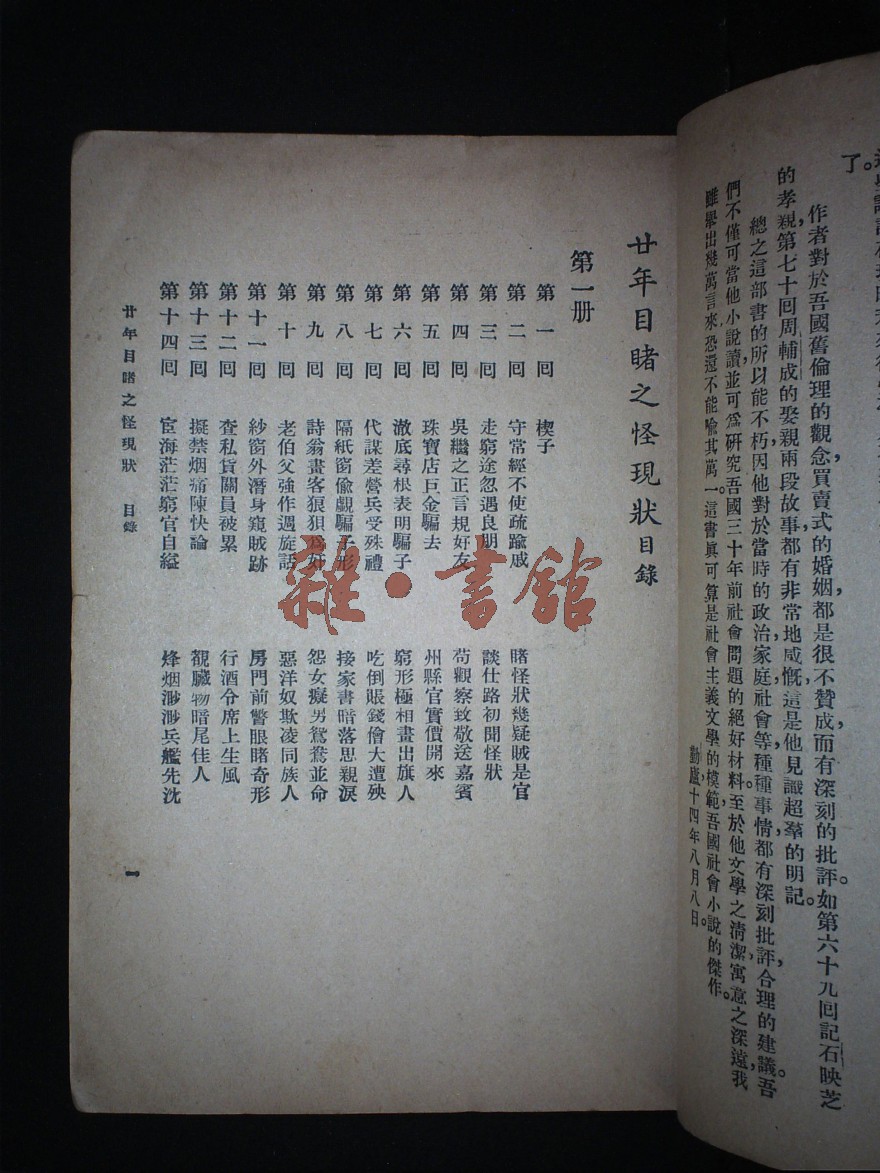 了。
作者對於吾國舊倫理的觀念,買賣式的婚姻,都是很不贊成,而有深刻的批評。如第六十九回記石映芝
的孝親,第七十回周輔成的娶親,兩段故事,都有非常地感慨,這是他見識超羣的明記。
總之這部書的所以能不朽,因他對於當時的政治家庭社會等種種事情,都有深刻批評,合理的建議。吾
們不僅可當他小說讀,並可爲研究吾國三十年前社會問題的絕好材料。至於他文學之清潔,寓意之深遠,我
雖舉出幾萬言來,恐還不能喩其萬一。這書眞可算是社會主義文學的模範,吾國社會小說的傑作。
勷廬十四年八月八日。
廿年目睹之怪現狀目錄
第一册
第一回 楔子
第二回 守常經不使疏踰戚 睹怪狀幾疑賊是官
第三回 走窮途忽遇良朋 談仕路初聞怪狀
第四回 吳繼之正言規好友 苟觀察致敬送嘉賓
第五回 珠寶店巨金騙去 州縣官實價開來
第六回 澈底尋根表明騙子 窮形極相畫出旗人
第七回 代謀差營兵受殊禮 吃倒賬錢儈大遭殃
第八回 隔紙窗偸覷騙子形 接家書暗落思親淚
第九回 詩翁畫客狼狽爲奸 怨女癡男鴛鴦並命
第十回 老伯父強作週旋話 惡洋奴欺凌同族人
第十一回 紗窗外潛身窺賊跡 房門前瞥眼睹奇形
第十二回 查私貨關員被累 行酒令席上生風
第十三回 擬禁烟痛陳快論 覩贓物暗尾佳人
第十四回 宦海茫茫窮官自縊 烽烟渺渺兵艦先沈
廿年目睹之怪現狀 目錄
一
雜·書館